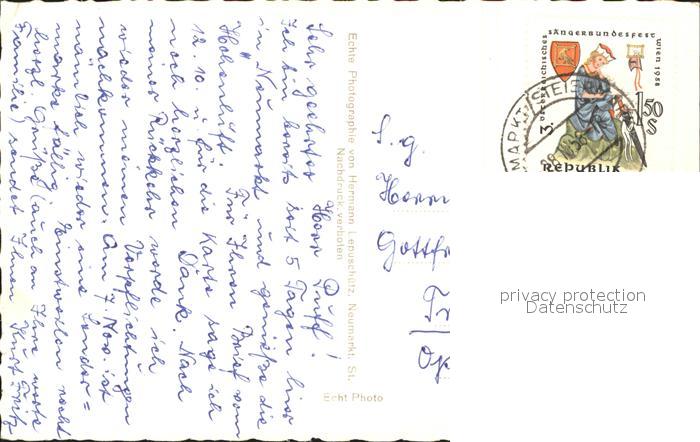 Sehr geehrter Herr Puff!
Ich bin bereits seit 5 Tagen hier
in Neumarkt und genieße die
Höhenluft. Für Ihren Brief vom
12. 10. u. für die Karte sage ich
noch herzlichen Dank. Nach
meiner Rückkehr werde ich
wieder meinen Verpflichtungen
nachkommen. Am 7. Nov. ist
nämlich wieder eine Sonder=
marke fällig. Einstweilen recht
herzl. Grüße (auch an Ihre werte
Familie) sendet Ihnen
Echte Photographie von Hermann Lepuschütz, Neumarkt, St.
Nachdruck verboten
Echt Photo
S. g.
Herrn
Gottfr
3. österreichisches sängerbundesfest wien 1958
1.50 S
REPUBLIK
MARKT STEIE
privacy protection
Datenschutz